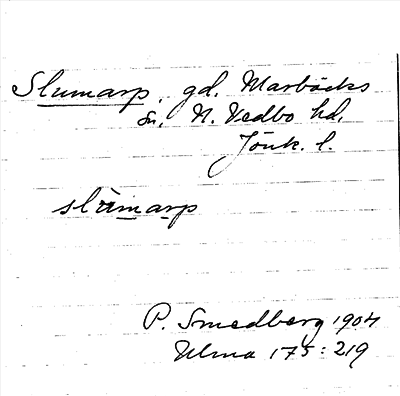 Slumarp, gd. Marbäcks
sn. N. Vedbo hd.
Jönk. l.
slùmarp
P. Smedberg 1904
Ulma 175:219